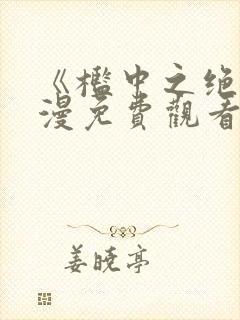 《槛中之绝
漫免費觀看
姜晓亭